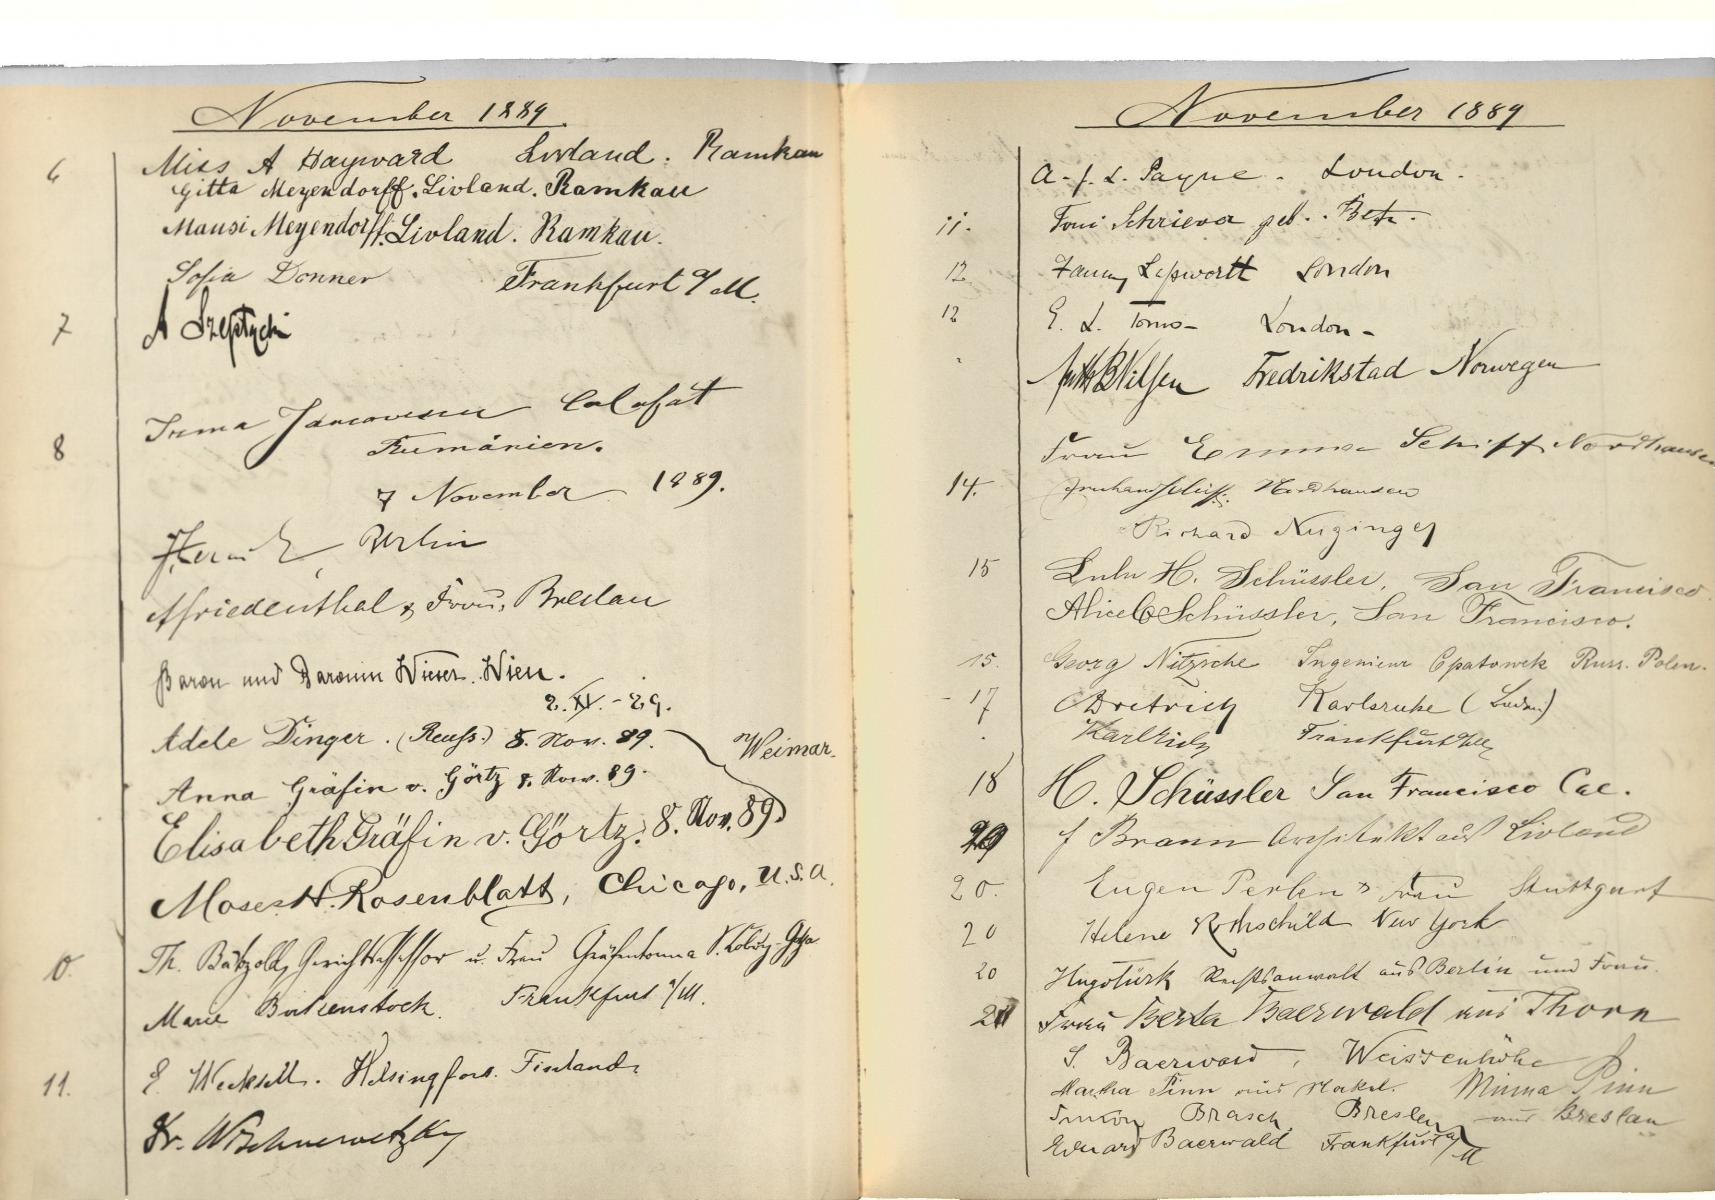 November 1889
6 Miss A Hayward Livland. Ramkau
Gitta Meyendorff. Livland. Ramkau
Mausi Meyendorff. Livland. Ramkau.
Sofia Donner Frankfurt a/M.
7 A Szeptycki
Irma Calafat
8 Rumänien.
7 November 1889.
Berlin
Afriedenthal & Frau, Breslau
Baron und Baronin Wieser. Wien.
2. XI. - 29.
Adele Dinger. (Reuss.) 8. Nov. 89.
Weimar.
Anna Gräfin v. Görtz 8. Nov. 89.
Elisabeth Gräfin v. Görtz. 8. Nov. 89.
Moses H. Rosenblatt, Chicago, U.S.A.
Th. u. Frau Gräfentonna
Marie Birkenstock. Frankfurt a/M.
11. E Helsingfors. Finland.
Dr.
November 1889
A. J. L. Payne - London -
11. Toni Schriever geb.
12 Fanny London
12 E. L. Toms - London -
B Nilsen Fredrikstad Norwegen
Frau Emma Schiff Nordhausen
14. Nordhausen
Richard
15 Lulu H. Schüssler, San Francisco
Alice C Schüssler, San Francisco.
15. Georg Nitzsche Ingenieur Opatowek Russ. Polen.
17 Karlsruhe
Karl Frankfurt
18 H. Schüssler San Francisco Cal.
f Braun Architekt aus Livland
20. Eugen Frau Stuttgart
20 Helene Rothschild New York
20 Hugo Türk Rechtsanwalt aus Berlin und Frau.
21 Frau Berta Baerwald aus Thorn
S. Baerwald, Weissenhöhe
Martha Pinn aus Nakel. Minna Pinn
Simon Brasch, Breslau aus Breslau
Eduard Baerwald Frankfurt a/M